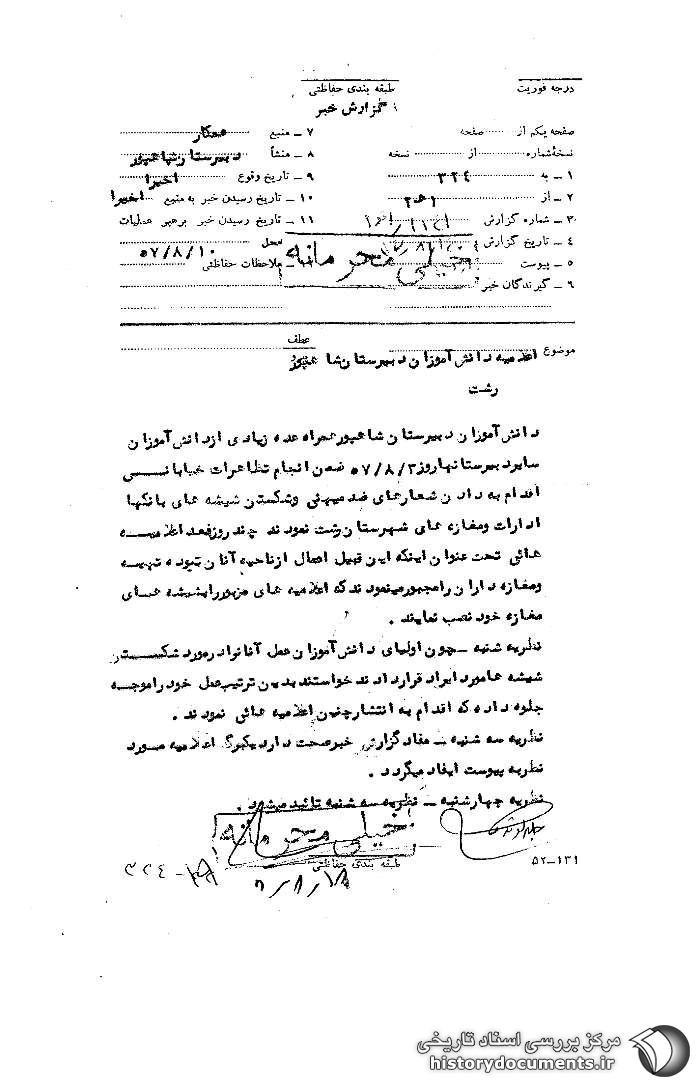 درجه فوریت
طبقه بندی حفاظتی
گزارش خبر
صفحه یکم از صفحه
۷ ـ منبع همکار
نسخه شماره از نسخه
۸ ـ منشأ دبیرستان شاهپور
۱ ـ به ۳۲۴
۹ ـ تاریخ وقوع اخیرا
۲ ـ از
۱۰ ـ تاریخ رسیدن خبر به منبع اخیرا
۳ ـ شماره گزارش
۱۱ ـ تاریخ رسیدن خبر برهبر عملیات
۴ ـ تاریخ گزارش
محل ۵۷/۸/۱۰
۵ ـ پیوست
ملاحظات حفاظتی
خیلی محرمانه
۶ ـ گیرندگان خبر
عطف
موضوع اعلامیه دانش آموزان دبیرستان شاهپور
رشت
دانش آموزان دبیرستان شاهپور همراه عده زیادی از دانش آموزان
سایر دبیرستانها روز ۵۷/۸/۳ ضمن انجام تظاهرات خیابانی
اقدام به دادن شعارهای ضد میهنی و شکستن شیشه های بانکها
ادارات و مغازه های شهرستان رشت نمودند چند روز بعد اعلامیه
هائی تحت عنوان اینکه این قبیل اعمال از ناحیه آنان نبوده تهیه
و مغازه داران را مجبور مینمودند که اعلامیه های مزبور را بشیشه های
مغازه خود نصب نمایند .
نظریه شنبه ـ چون اولیای دانش آموزان عمل آنانرا در مورد شکستن
شیشه ها مورد ایراد قرار دادند خواستند بدین ترتیب عمل خود را موجه
جلوه داده که اقدام به انتشار چنین اعلامیه هائی نمودند .
نظریه سه شنبه ـ مفاد گزارش خبر صحت دارد یکبرگ اعلامیه مورد
نظر به پیوست ایفاد میگردد .
نظریه چهارشنبه ـ نظریه سه شنبه تائید میشود .
خیلی محرمانه
طبقه بندی حفاظتی
۵۲-۱۳۱
مرکز بررسی اسناد تاریخی
historydocuments.ir